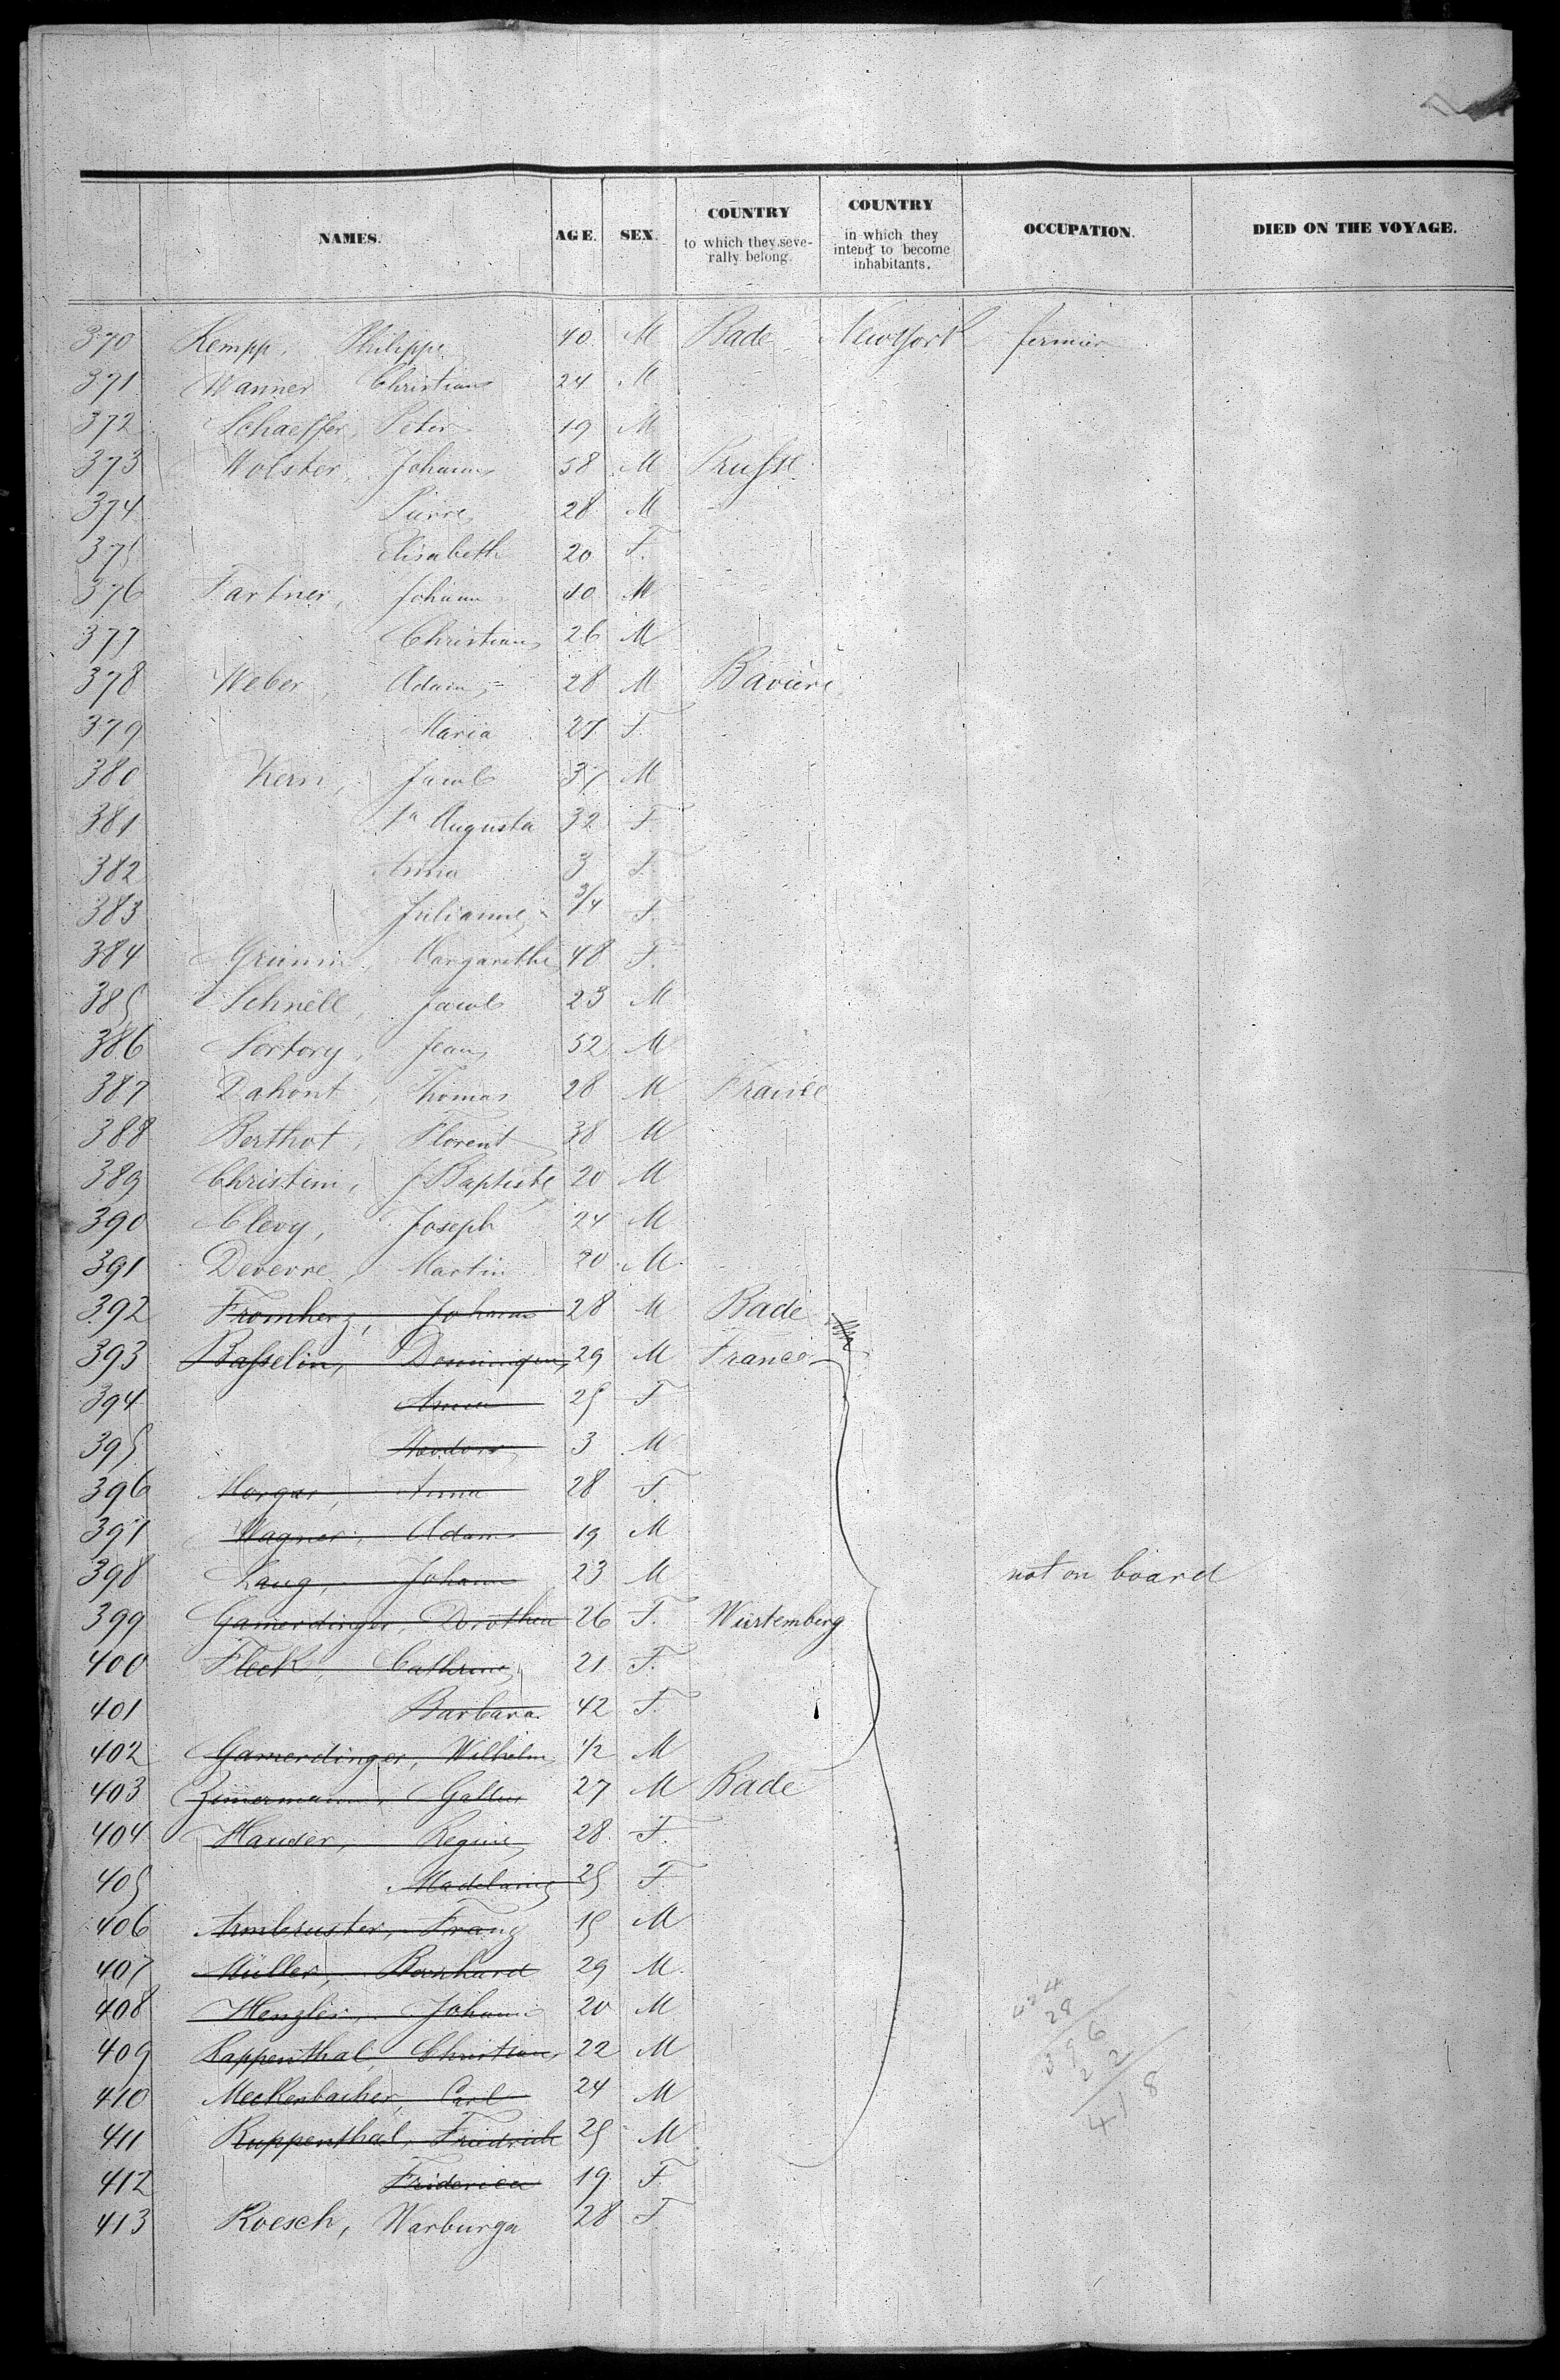 NAMES. AGE. SEX. COUNTRY to which they severally belong. COUNTRY in which they intend to become inhabitants. OCCUPATION. DIED ON THE VOYAGE.
370 Kempp, Philippe 40 M Bade New York fermier
371 Wanner Christian 24 M
372 Schaeffer, Peter 19 M
373 Wolster, Johann 58 M Prusse
374 Pierre 28 M
375 Elisabeth 20 F.
376 Fartner, Johann 40 M
377 Christian 26 M
378 Weber, Adam 28 M Baviere
379 Maria 27 F.
380 Kern, Jacob 37 M
381 Augusta 32 F.
382 Anna 3 F.
383 Julianne 3/4 F.
384 Grimm, Margarethe 48 F.
385 Schnell, Jacob 23 M
386 Sortory, Jean 52 M
387 Dahont, Thomas 28 M France
388 Berthot, Florent 38 M
389 Christini, J Baptiste 20 M
390 Clevy, Joseph 24 M
391 Deverre, Martin 20 M
392 Fromherz, Johann 28 M Bade
393 Basselin, Dominique 29 M France
394 Anna 25 F
395 Theodore 3 M
396 Morgar, Anna 28 F.
397 Wagner, Adam 19 M
398 Lang, Johann 23 M not on board
399 Gamerdinger, Dorothea 26 F. Würtemberg
400 Fleck, Cathrine 21 F.
401 Barbara 42 F.
402 Gamerdinger, Wilhelm 1/2 M
403 Zimermann, Gallus 27 M Bade
404 Hauser, Regine 28 F.
405 Madelaine 25 F
406 Armbruster, Franz 19 M
407 Müller, Bernhard 29 M
408 Henzler, Johann 20 M
409 Rappenthal, Christian 22 M
410 Meckenbacher, Carl 24 M
411 Ruppenthal, Friedrich 25 M
412 Friderica 19 F
413 Roesch, Warburga 28 F
424
28
396
22
418